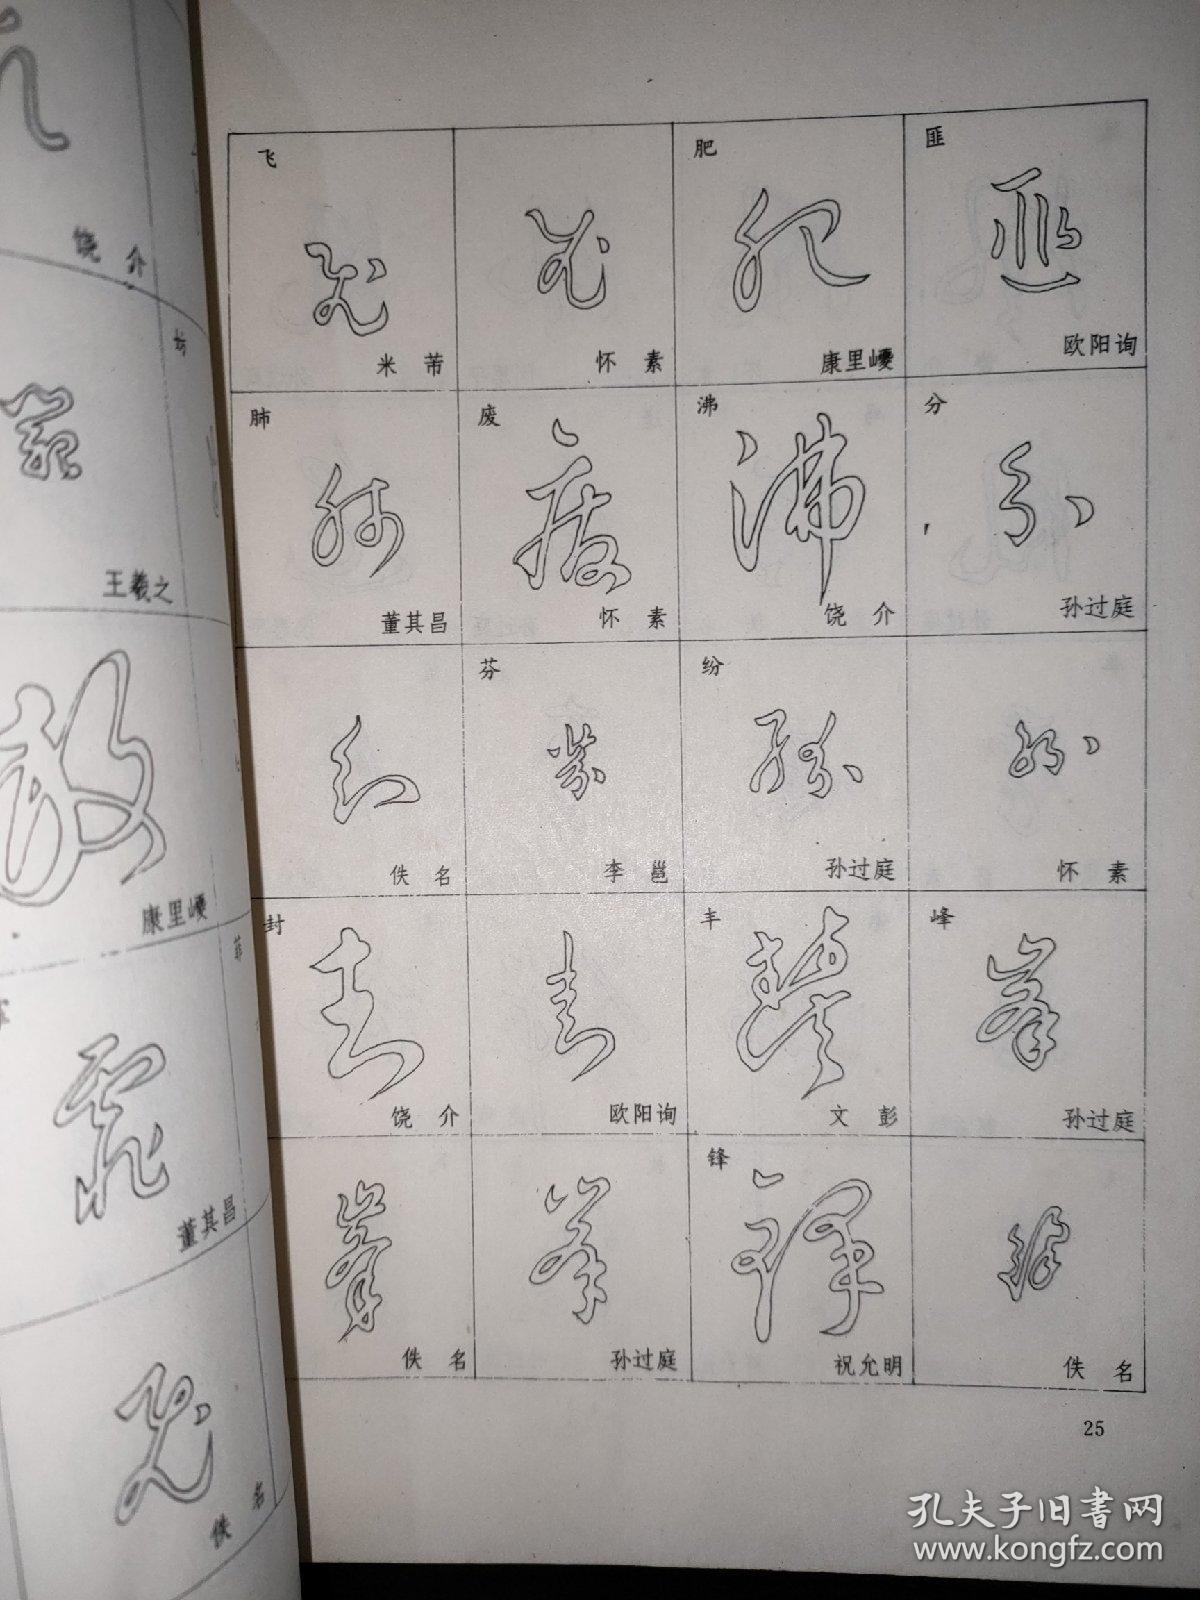 饶 介
王羲之
康里巎
董其昌
佚 名
坊
菲
飞
肥
匪
米 芾
怀 素
康里巎
欧阳询
肺
废
沸
分
董其昌
怀 素
饶 介
孙过庭
芬
纷
佚 名
李 邕
孙过庭
怀 素
封
丰
峰
饶 介
欧阳询
文 彭
孙过庭
锋
佚 名
孙过庭
祝允明
佚 名
25
孔夫子旧书网
www.kongfz.com